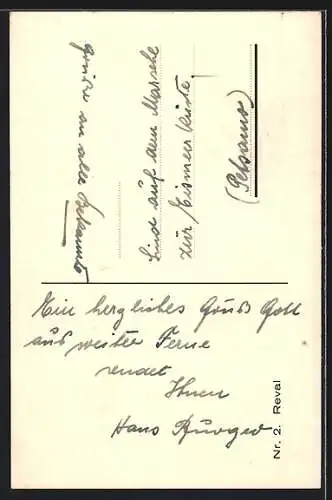 Ein herzliches Grüß Gott
aus weiter Ferne
sendet
Ihnen
Hans
Sind auf dem Marsche
zur Eismeerküste
(Petsamo)
Grüße an alle Bekannte
Nr. 2. Reval